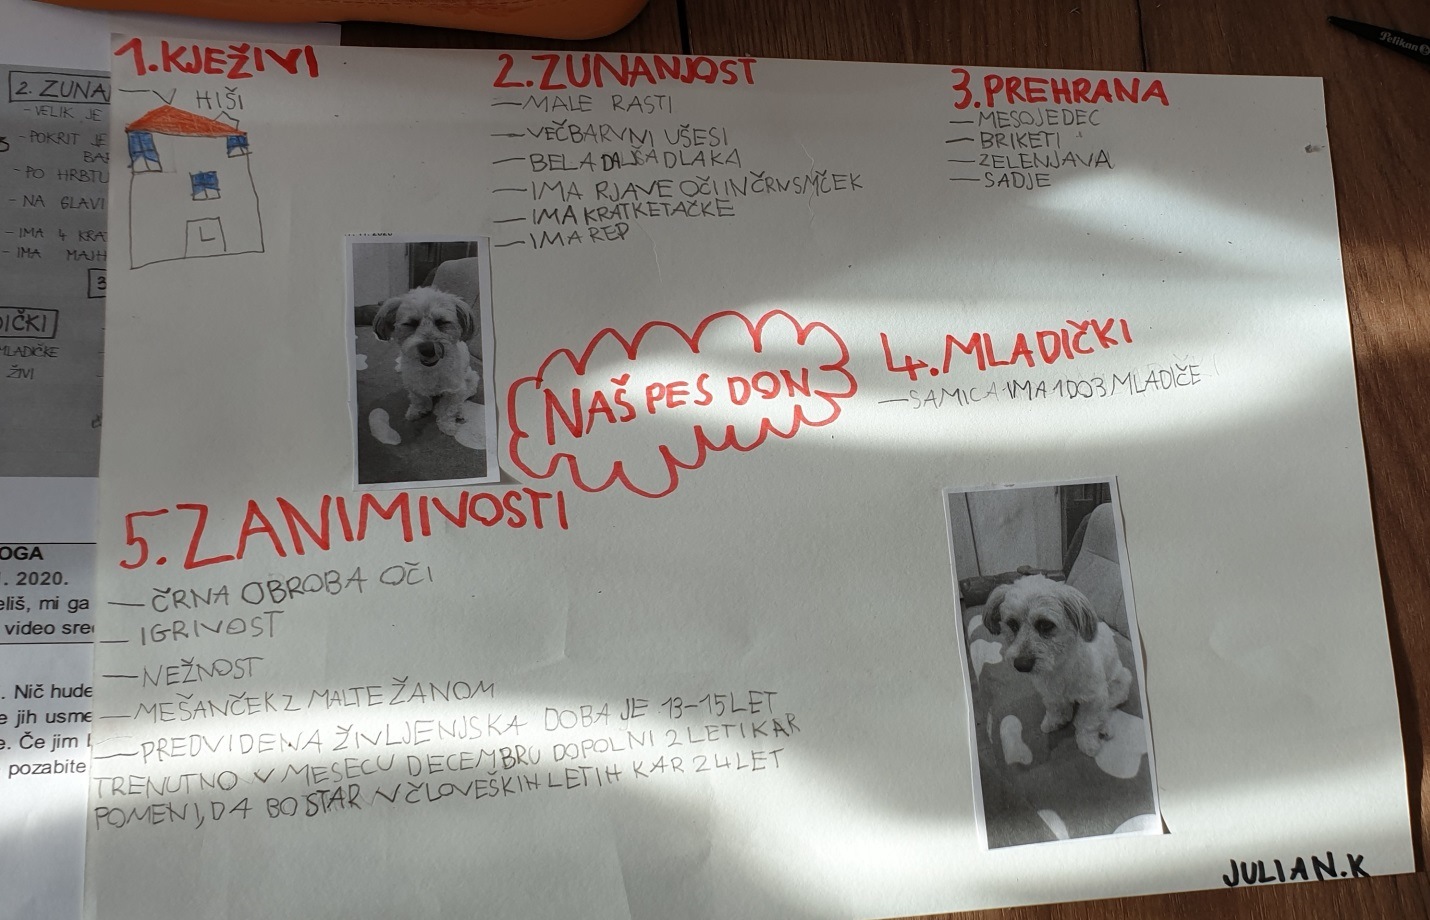 1.KJEŽIVI
—V HIŠI
2.ZUNANJOST
—MALE RASTI
—VEČBARVNI UŠESI
—BELA DALŠA DLAKA
—IMA RJAVE OČI IN ČRN SMČEK
—IMA KRATKE TAČKE
—IMA REP
3.PREHRANA
—MESOJEDEC
—BRIKETI
—ZELENJAVA
—SADJE
NAŠ PES DON
4.MLADIČKI
—SAMICA IMA 1DO3 MLADIČE
5.ZANIMIVOSTI
—ČRNA OBROBA OČI
—IGRIVOST
—NEŽNOST
—MEŠANČEK Z MALTEŽANOM
—PREDVIDENA ŽIVLJENJSKA DOBA JE 13-15 LET
TRENUTNO V MESECU DECEMBRU DOPOLNI 2 LETI KAR
POMENI, DA BO STAR V ČLOVEŠKIH LETIH KAR 24 LET
JULIAN.K
2. ZUNA
-VELIK JE
-POKRIT JE
BAR
-PO HRBTU
-NA GLAVI
-IMA 4 KRA
-IMA MAJH
3
DIČKI
MLADIČKE
ŽIVI
OGA
. 2020.
eliš, mi ga
video sre
. Nič hude
e jih usme
e. Če jim
pozabite
Pelikan